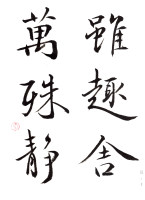 雖趣舍
萬殊静